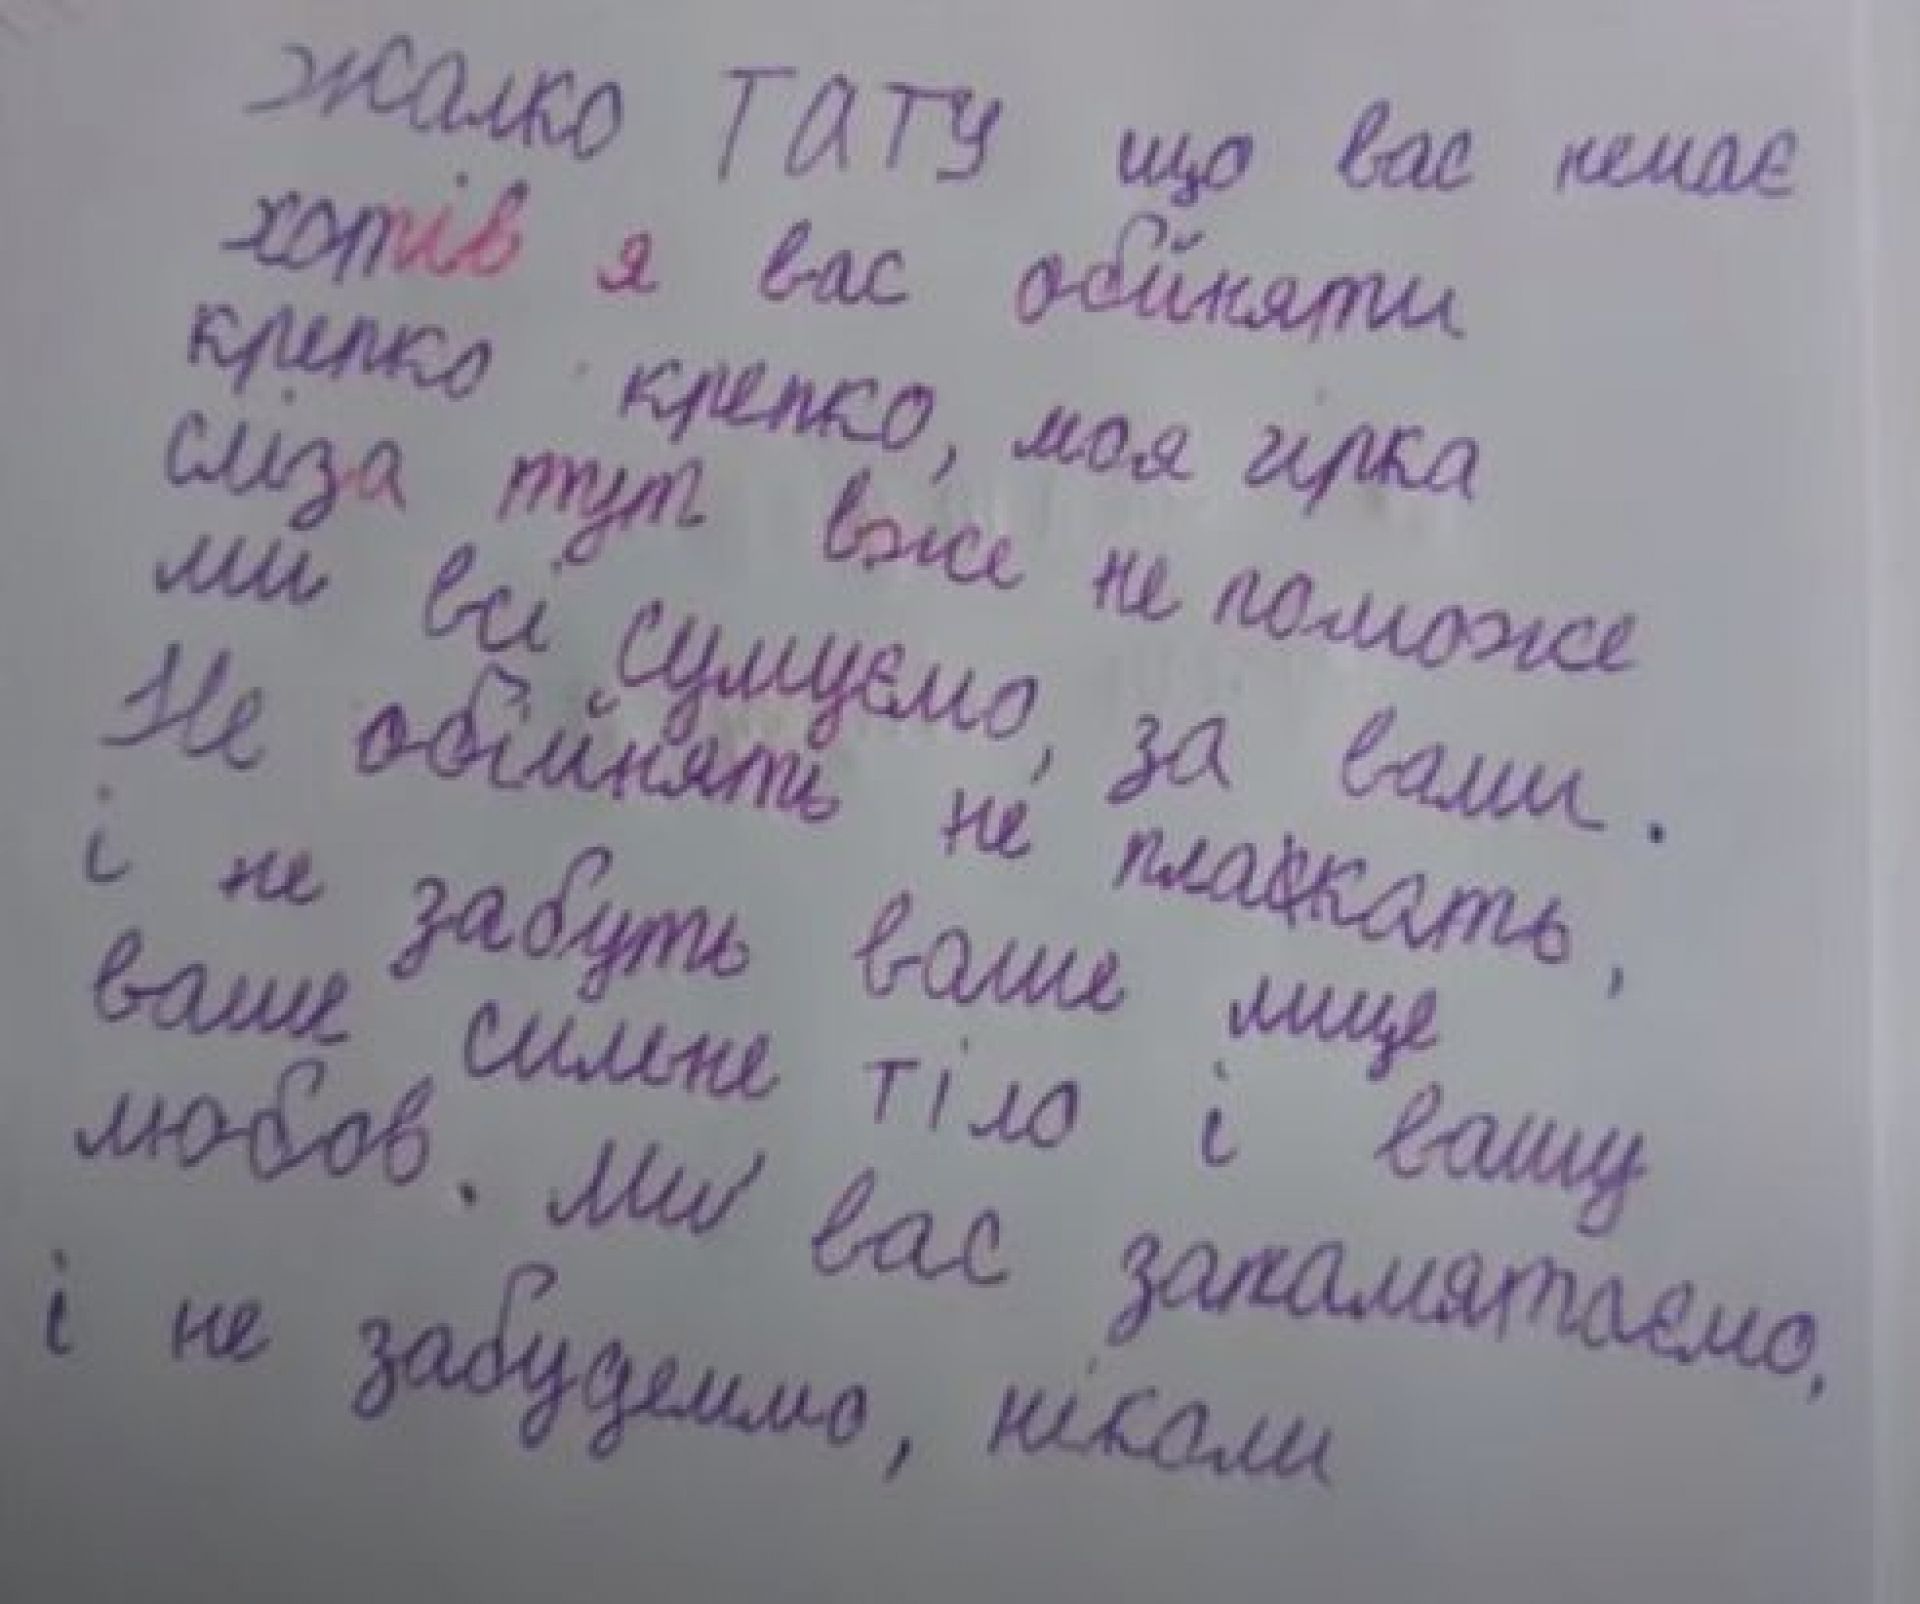 Жалко ТАТУ що вас немає
хотів я вас обійняти
крепко крепко, моя гірка
сліза тут вже не поможе
ми всі сумуємо, за вами.
Не обійнять не плакать,
і не забуть ваше лице
ваше сильне тіло і вашу
любов. Ми вас запамятаємо,
і не забудеммо, ніколи